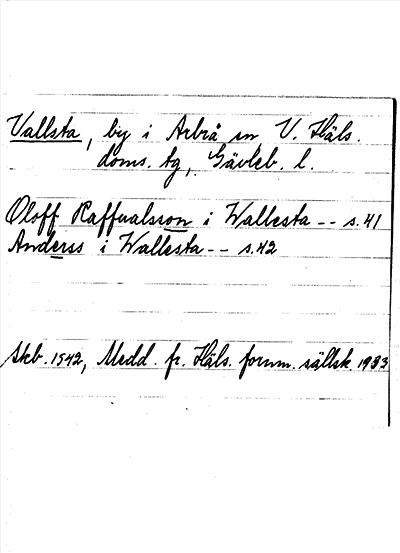 Vallsta, by i Arbrå sn V. Häls.
doms. tg, Gävleb. l.
Oloff Raffualsson i Wallesta -- s. 41
Anderss i Wallesta -- s. 42
Skb. 1542, Medd. fr. Häls. fornm. sällsk. 1933